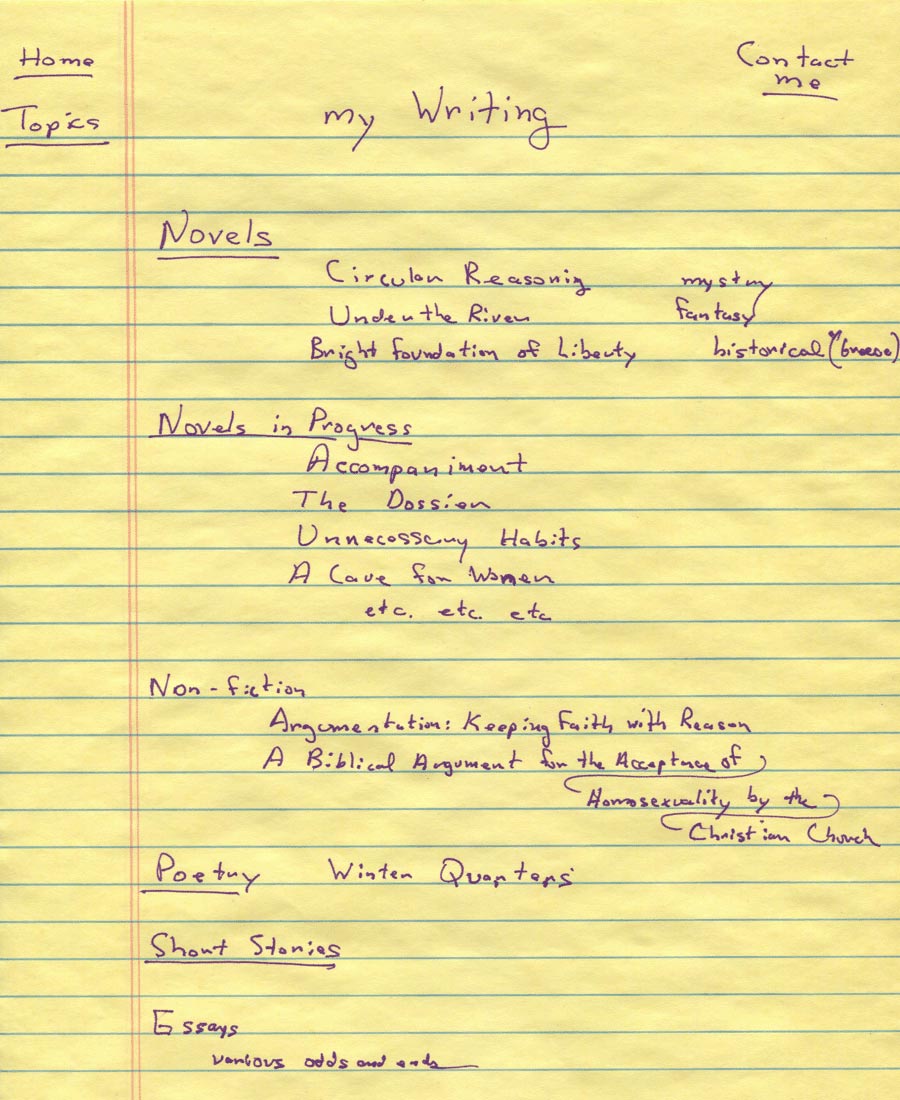 Home
Contact
me
Topics
my Writing
Novels
Circular Reasoning mystery
Under the River fantasy
Bright Foundation of Liberty historical (Greece)
Novels in Progress
Accompaniment
The Dossier
Unnecessary Habits
A Cave for Women
etc. etc. etc
Non-fiction
Argumentation: Keeping Faith with Reason
A Biblical Argument for the Acceptance of
Homosexuality by the
Christian Church
Poetry Winter Quarters
Short Stories
Essays
various odds and ends